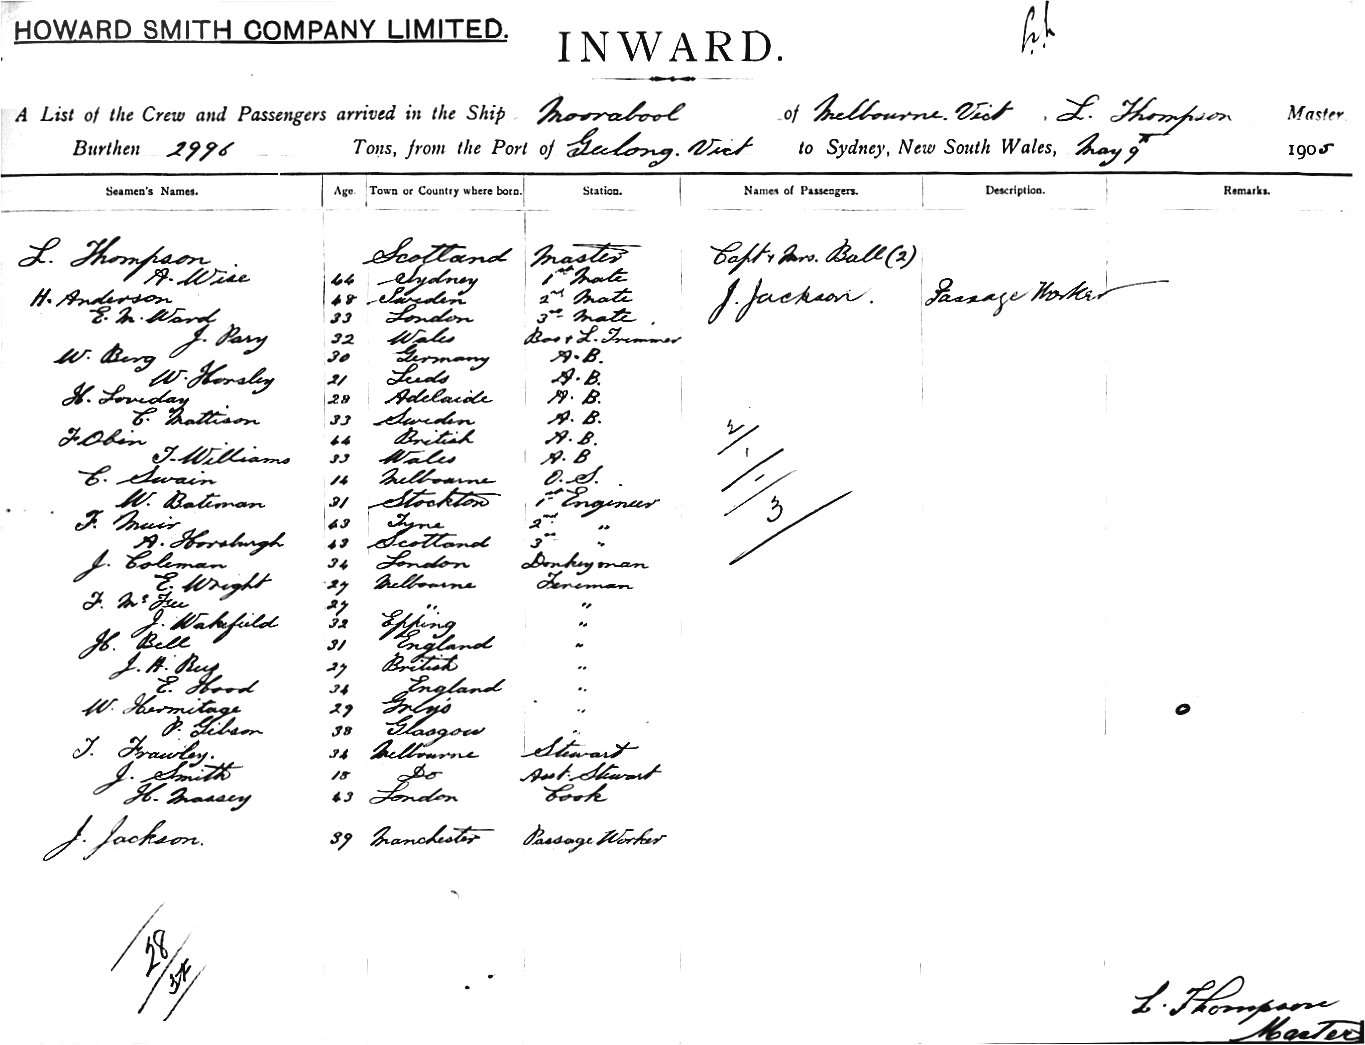 HOWARD SMITH COMPANY LIMITED.
INWARD.
A List of the Crew and Passengers arrived in the Ship Moorabool of Melbourne. Vict. L. Thompson Master
Burthen 2996 Tons, from the Port of Geelong. Vict to Sydney, New South Wales, May 9th 1905
Seamen's Names. Age. Town or Country where born. Station. Names of Passengers. Description. Remarks.
L. Thompson Scotland Master Capt & Mrs. Ball (2)
A. Wise 44 Sydney 1st Mate
H. Anderson 48 Sweden 2nd Mate J. Jackson. Passage Worker
E. M. Ward 33 London 3rd Mate.
J. Pary 32 Wales Bos & L. Trimmer
W. Berg 30 Germany A.B.
W. Horsley 21 Leeds A.B.
H. Loveday 28 Adelaide A.B.
C. Mattison 33 Sweden A.B.
F. Obin 44 British A.B.
T. Williams 33 Wales A.B
C. Swain 14 Melbourne O.S.
W. Bateman 31 Stockton 1st Engineer
F. Muir 43 Tyne 2nd "
A. Horsburgh 43 Scotland 3rd "
J. Coleman 34 London Donkeyman
E. Wright 27 Melbourne Fireman
F. McFee 27 " "
J. Wakefield 32 Epping "
H. Bell 31 England "
J. H. 27 British "
E. Hood 34 England "
W. Hermitage 29 "
P. Gibson 38 Glasgow "
T. Frawley. 34 Melbourne Stewart
J. Smith 18 Do Asst. Stewart
H. Massey 43 London Cook
J. Jackson. 39 Manchester Passage Worker
2/1/1/3
28
L. Thompson
Master